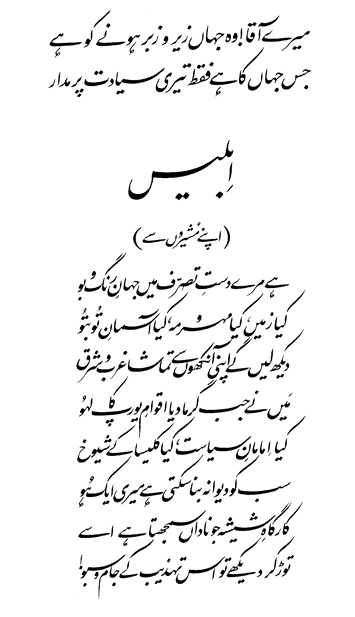 میرے آقا! وہ جہاں زیر و زبر ہونے کو ہے
جس جہاں کا ہے فقط تیری سیادت پر مدار
اِبلیس
(اپنے مُشیروں سے)
ہے مرے دستِ تصرّف میں جہانِ رنگ و بو
کیا زمیں، کیا مہر و مہ، کیا آسمانِ تُو بتُو
دیکھ لیں گے اپنی آنکھوں سے تماشا غرب و شرق
مَیں نے جب گرما دیا اقوامِ یورپ کا لہُو
کیا امامانِ سیاست، کیا کلیسا کے شیوخ
سب کو دیوانہ بنا سکتی ہے میری ایک ہُو
کارگاہِ شیشہ جو ناداں سمجھتا ہے اسے
توڑ کر دیکھے تو اس تہذیب کے جام و سبو!